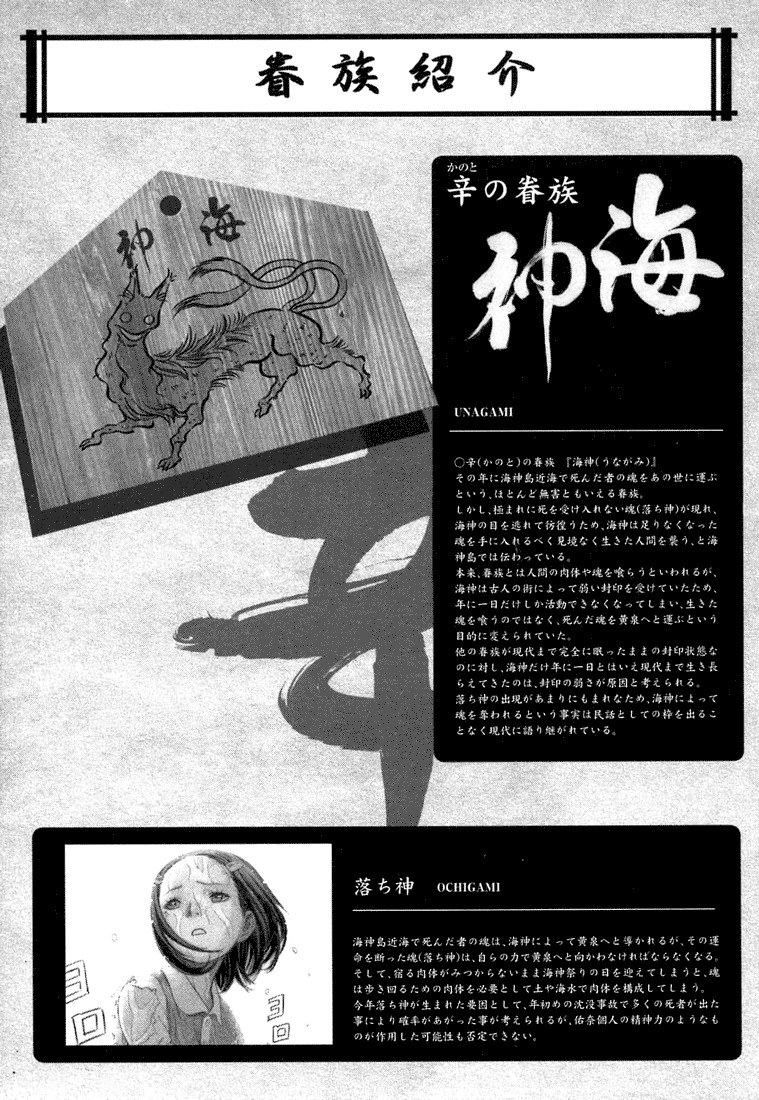 眷族紹介
海神
かのと
辛の眷族
海神
UNAGAMI
○辛(かのと)の眷族 『海神(うながみ)』
その年に海神島近海で死んだ者の魂をあの世に運ぶ
という、ほとんど無害ともいえる眷族。
しかし、極まれに死を受け入れない魂(落ち神)が現れ、
海神の目を逃れて彷徨うため、海神は足りなくなった
魂を手に入れるべく見境なく生きた人間を襲う、と海
神島では伝わっている。
本来、眷族とは人間の肉体や魂を喰らうといわれるが、
海神は古人の術によって弱い封印を受けていたため、
年に一日だけしか活動できなくなってしまい、生きた
魂を喰うのではなく、死んだ魂を黄泉へと運ぶという
目的に変えられていた。
他の眷族が現代まで完全に眠ったままの封印状態な
のに対し、海神だけ年に一日とはいえ現代まで生き長
らえてきたのは、封印の弱さが原因と考えられる。
落ち神の出現があまりにもまれなため、海神によって
魂を奪われるという事実は民話としての枠を出るこ
となく現代に語り継がれている。
辛
落ち神 OCHIGAMI
海神島近海で死んだ者の魂は、海神によって黄泉へと導かれるが、その運
命を断った魂(落ち神)は、自らの力で黄泉へと向かわなければならなくなる。
そして、宿る肉体がみつからないまま海神祭りの日を迎えてしまうと、魂
は歩き回るための肉体を必要として土や海水で肉体を構成してしまう。
今年落ち神が生まれた要因として、年初めの沈没事故で多くの死者が出た
事により確率があがった事が考えられるが、佑奈個人の精神力のようなも
のが作用した可能性も否定できない。
ヨロ
ヨロ